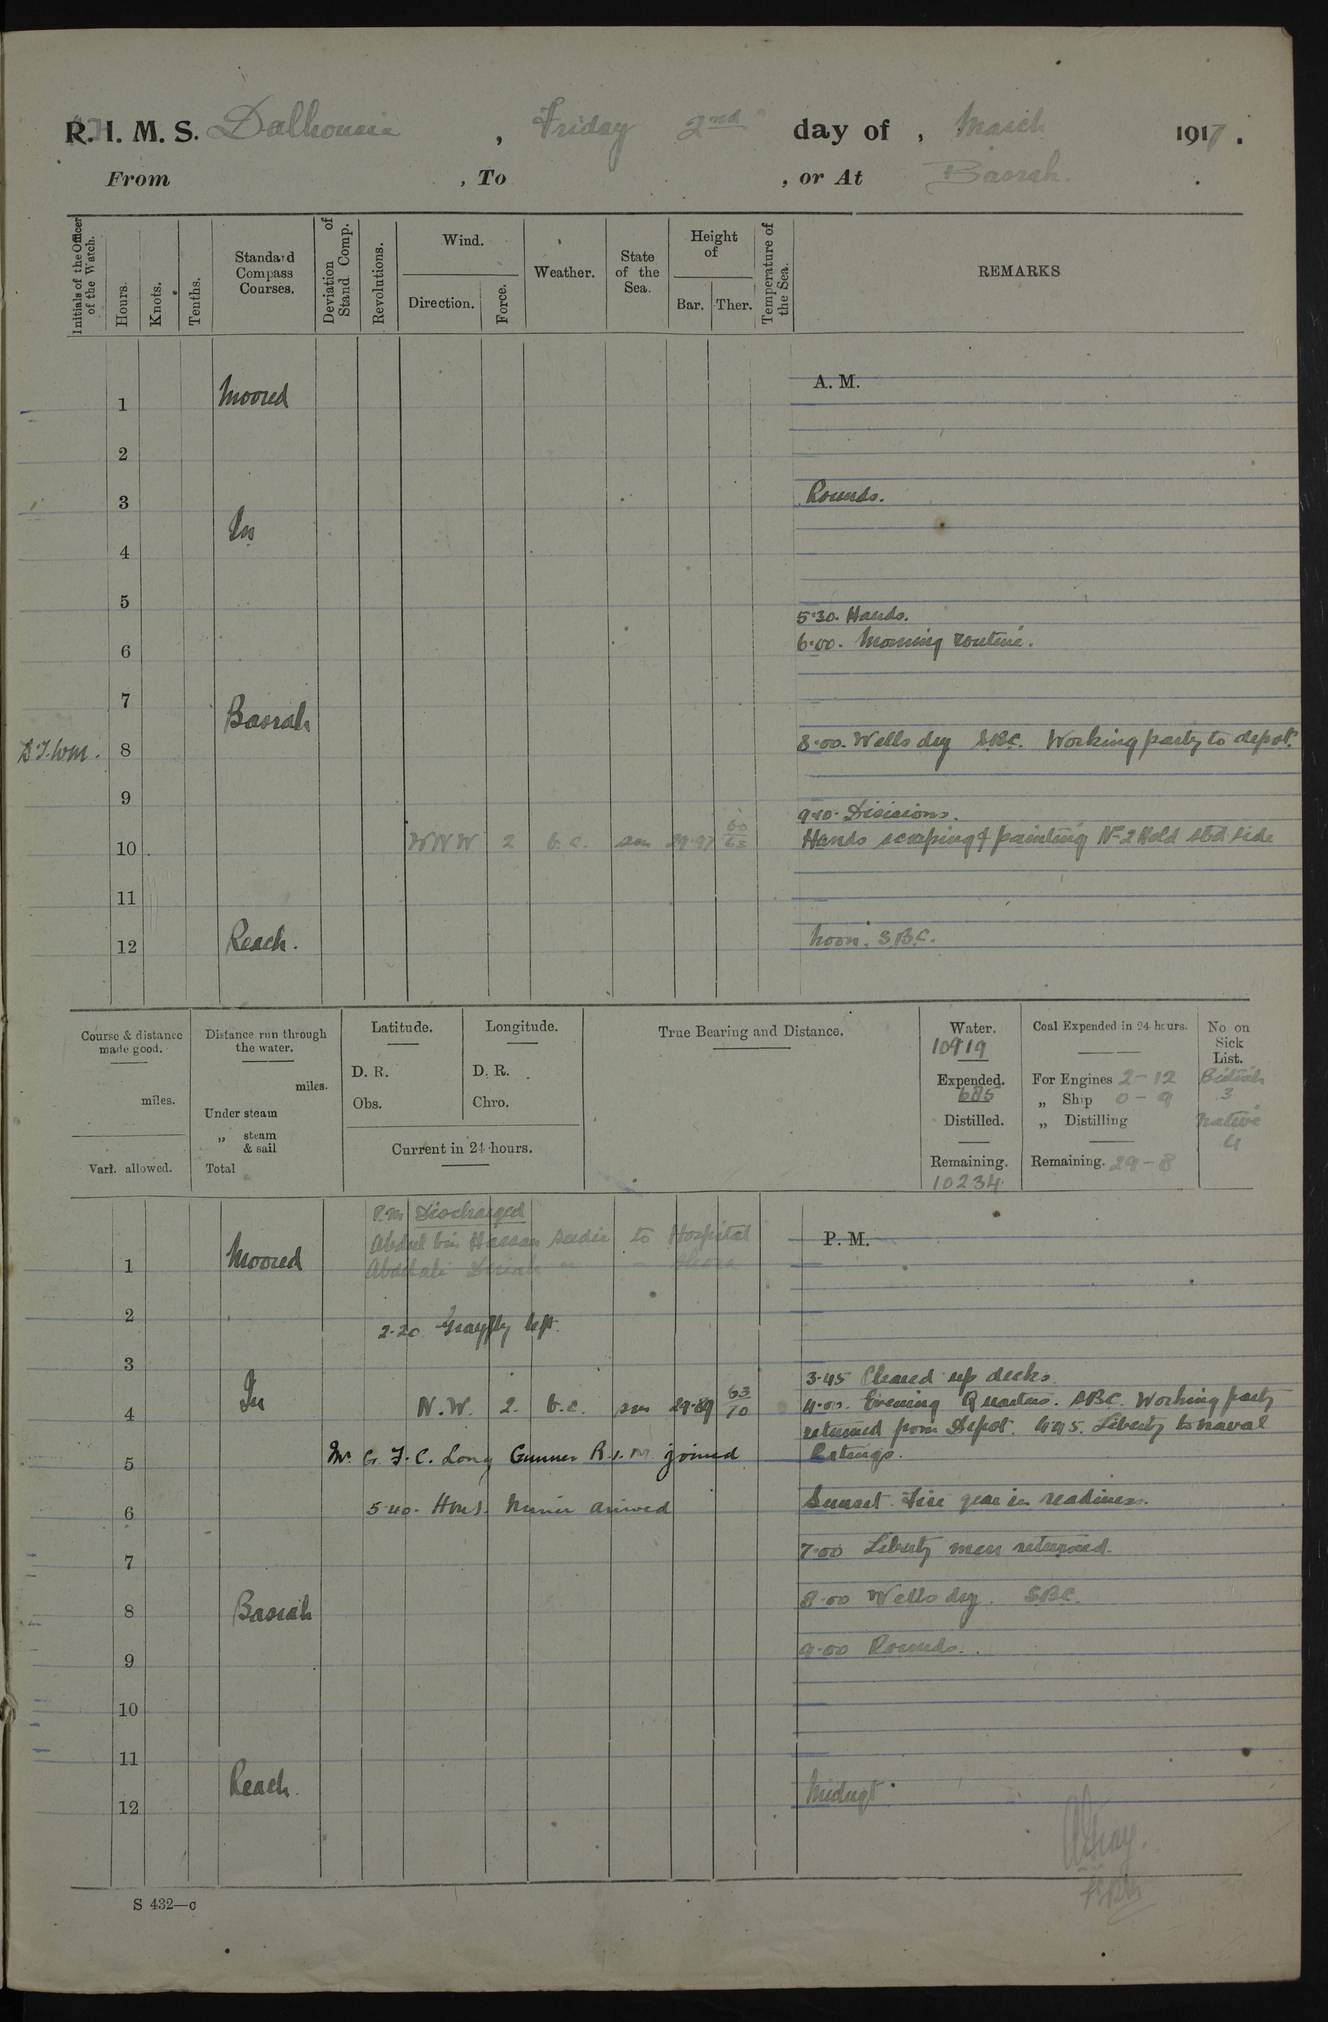 R.I.M.S. Dalhousie , Friday 2nd day of , March 1917.
From , To , or At Basrah.
Initials of the Officer of the Watch.
Hours.
Knots.
Tenths.
Standard Compass Courses.
Deviation of Stand Comp.
Revolutions.
Wind.
Direction.
Force.
Weather.
State of the Sea.
Height of
Bar. Ther.
Temperature of the Sea.
REMARKS
A. M.
1 Moored
2
3 Rounds.
In
4
5
5.30. Hands.
6 6.00. Morning routine.
7 Basrah
8 8.00. Wells dry SBC. Working party to depot.
9
9.10. Divisions.
10 WNW 2 b.c. sm 29.97 60/63 Hands scraping & painting No 2 Hold stbd side
11
12 Reach. Noon. S.B.C.
Course & distance made good.
miles.
Varn. allowed.
Distance run through the water.
miles.
Under steam
„ steam & sail
Total
Latitude.
D. R.
Obs.
Longitude.
D. R.
Chro.
Current in 24 hours.
True Bearing and Distance.
Water.
10919
Expended.
685
Distilled.
Remaining.
10234
Coal Expended in 24 hours.
For Engines 2-12
„ Ship 0-9
„ Distilling
Remaining. 29-8
No on Sick List.
British
3
Native
4
P.M. Discharged
Abdul bin Hassan to Hospital
P. M.
1 Moored
2
2.20 Grayfly left.
3
3.45 Cleared up decks.
In
4 N.W. 2. b.c. sm 29.89 63/70 4.00. Evening Quarters. SBC. Working party
returned from Depot. 4.45. Liberty to naval
5 Mr G. F. C. Long Gunner R.I.M. joined Ratings.
6 5.40. HMS. arrived Sunset. Fire gear in readiness.
7 7.00 Liberty men returned.
8 Basrah 8.00 Wells dry. SBC.
9 9.00 Rounds.
10
11
Reach. Midngt.
12
S 432—c